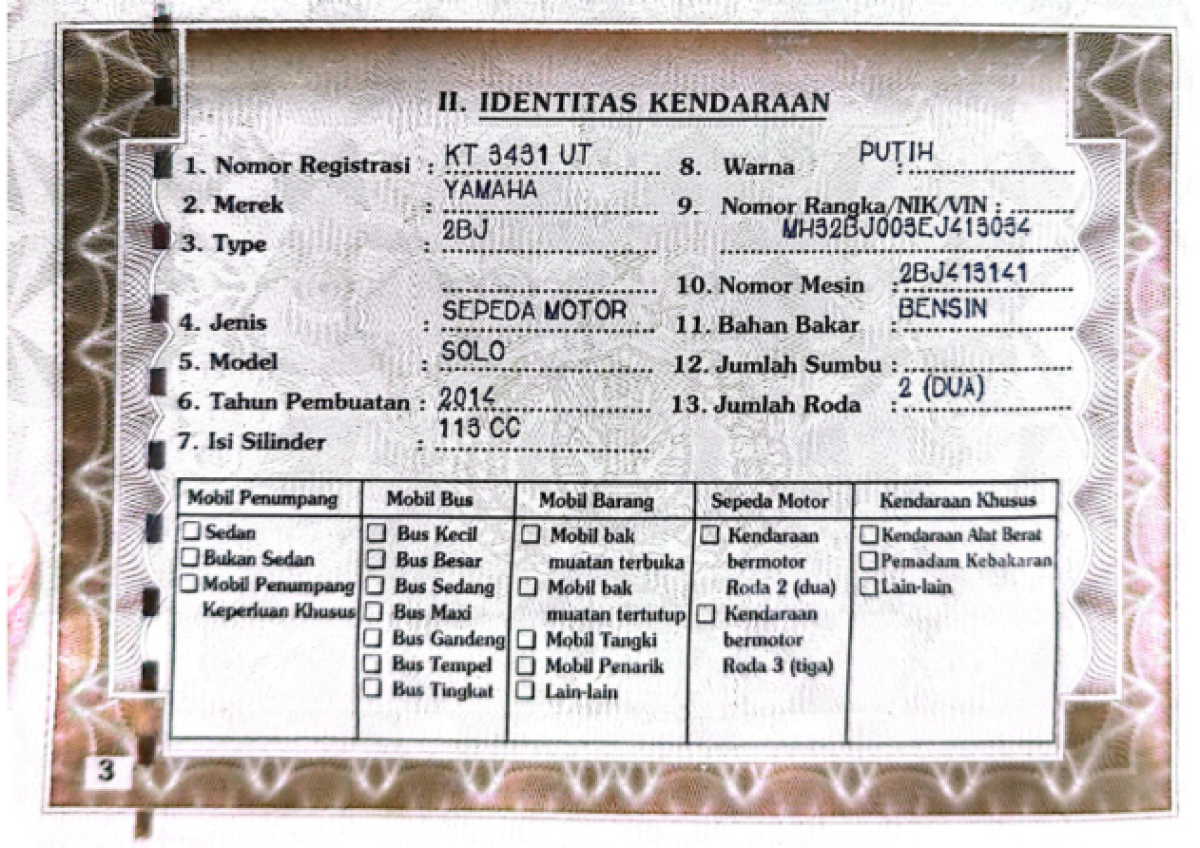 II. IDENTITAS KENDARAAN
1. Nomor Registrasi : KT 3431 UT
2. Merek : YAMAHA
3. Type : 2BJ
4. Jenis : SEPEDA MOTOR
5. Model : SOLO
6. Tahun Pembuatan : 2014
7. Isi Silinder : 113 CC
8. Warna : PUTIH
9. Nomor Rangka/NIK/VIN :
MH32BJ003EJ413034
10. Nomor Mesin : 2BJ413141
11. Bahan Bakar : BENSIN
12. Jumlah Sumbu :
13. Jumlah Roda : 2 (DUA)
Mobil Penumpang
Sedan
Bukan Sedan
Mobil Penumpang
Keperluan Khusus
Mobil Bus
Bus Kecil
Bus Besar
Bus Sedang
Bus Maxi
Bus Gandeng
Bus Tempel
Bus Tingkat
Mobil Barang
Mobil bak
muatan terbuka
Mobil bak
muatan tertutup
Mobil Tangki
Mobil Penarik
Lain-lain
Sepeda Motor
Kendaraan
bermotor
Roda 2 (dua)
Kendaraan
bermotor
Roda 3 (tiga)
Kendaraan Khusus
Kendaraan Alat Berat
Pemadam Kebakaran
Lain-lain
3